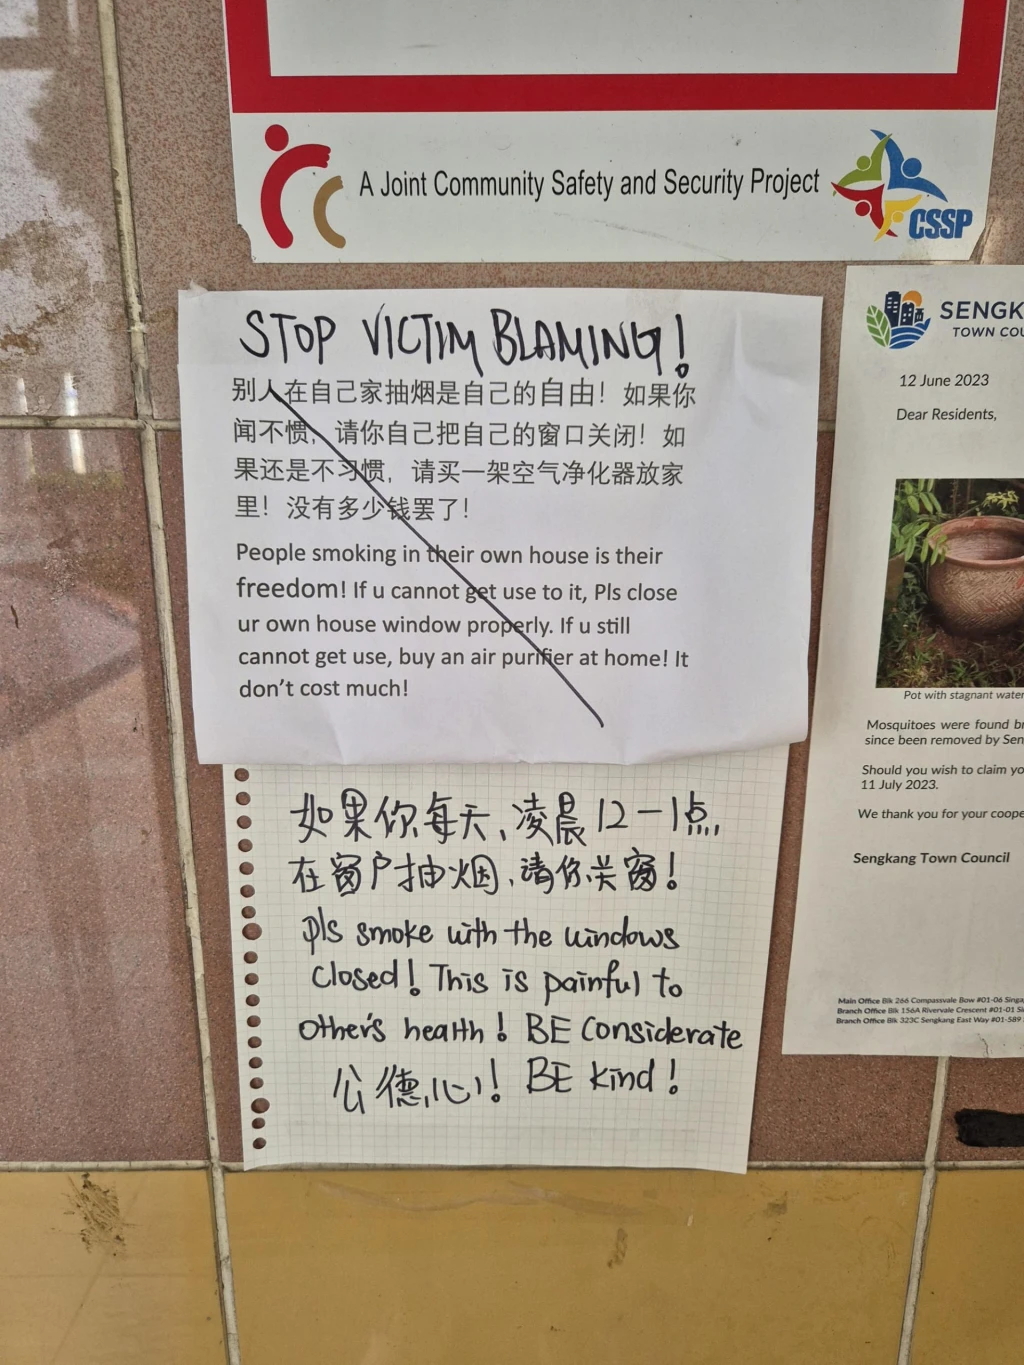 A Joint Community Safety and Security Project
CSSP
STOP VICTIM BLAMING!
别人在自己家抽烟是自己的自由！如果你
闻不惯，请你自己把自己的窗口关闭！如
果还是不习惯，请买一架空气净化器放家
里！没有多少钱罢了！
People smoking in their own house is their
freedom! If u cannot get use to it, Pls close
ur own house window properly. If u still
cannot get use, buy an air purifier at home! It
don't cost much!
如果你每天、凌晨12-1点，
在窗户抽烟，请你关窗！
pls smoke with the windows
closed! This is painful to
other's health! BE considerate
公德心！ BE kind!
SENGK
TOWN COU
12 June 2023
Dear Residents,
Pot with stagnant water
Mosquitoes were found br
since been removed by Sen
Should you wish to claim yo
11 July 2023.
We thank you for your coope
Sengkang Town Council
Main Office Blk 266 Compassvale Bow #01-06 Singa
Branch Office Blk 156A Rivervale Crescent #01-01 Si
Branch Office Blk 323C Sengkang East Way #01-589